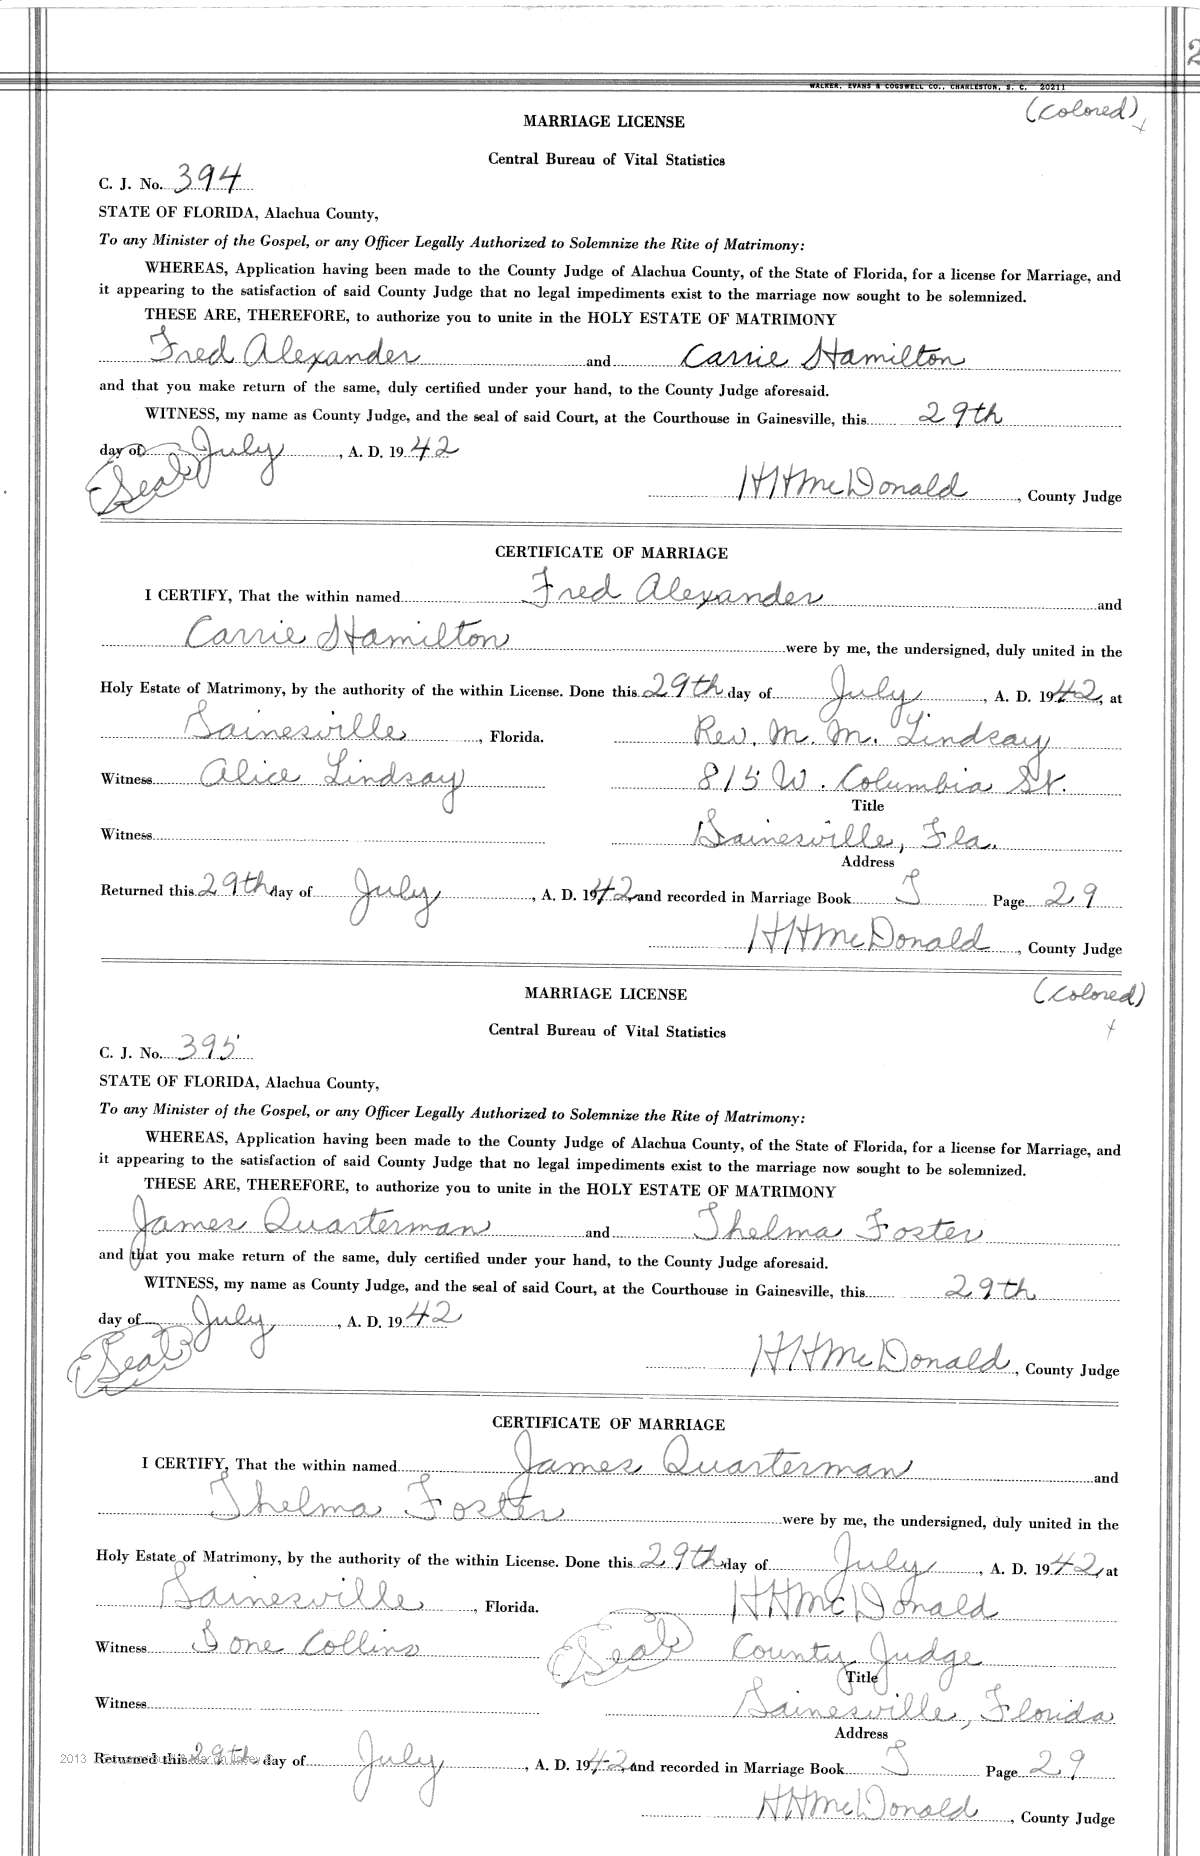 2
WALKER, EVANS & COGSWELL CO., CHARLESTON, S. C. 20211
(Colored)
MARRIAGE LICENSE
Central Bureau of Vital Statistics
C. J. No. 394
STATE OF FLORIDA, Alachua County,
To any Minister of the Gospel, or any Officer Legally Authorized to Solemnize the Rite of Matrimony:
WHEREAS, Application having been made to the County Judge of Alachua County, of the State of Florida, for a license for Marriage, and
it appearing to the satisfaction of said County Judge that no legal impediments exist to the marriage now sought to be solemnized.
THESE ARE, THEREFORE, to authorize you to unite in the HOLY ESTATE OF MATRIMONY
Fred Alexander and Carrie Hamilton
and that you make return of the same, duly certified under your hand, to the County Judge aforesaid.
WITNESS, my name as County Judge, and the seal of said Court, at the Courthouse in Gainesville, this 29th
day of July, A. D. 1942
(Seal)
HHMcDonald, County Judge
CERTIFICATE OF MARRIAGE
I CERTIFY, That the within named Fred Alexander and
Carrie Hamilton were by me, the undersigned, duly united in the
Holy Estate of Matrimony, by the authority of the within License. Done this 29th day of July, A. D. 1942, at
Gainesville, Florida. Rev. M. M. Lindsay
Witness Alice Lindsay 815 W. Columbia St.
Title
Witness Gainesville, Fla.
Address
Returned this 29th day of July, A. D. 1942 and recorded in Marriage Book Page 29
HHMcDonald, County Judge
(Colored)
MARRIAGE LICENSE
Central Bureau of Vital Statistics
C. J. No. 395
STATE OF FLORIDA, Alachua County,
To any Minister of the Gospel, or any Officer Legally Authorized to Solemnize the Rite of Matrimony:
WHEREAS, Application having been made to the County Judge of Alachua County, of the State of Florida, for a license for Marriage, and
it appearing to the satisfaction of said County Judge that no legal impediments exist to the marriage now sought to be solemnized.
THESE ARE, THEREFORE, to authorize you to unite in the HOLY ESTATE OF MATRIMONY
James Quarterman and Thelma Foster
and that you make return of the same, duly certified under your hand, to the County Judge aforesaid.
WITNESS, my name as County Judge, and the seal of said Court, at the Courthouse in Gainesville, this 29th
day of July, A. D. 1942
(Seal)
HHMcDonald, County Judge
CERTIFICATE OF MARRIAGE
I CERTIFY, That the within named James Quarterman and
Thelma Foster were by me, the undersigned, duly united in the
Holy Estate of Matrimony, by the authority of the within License. Done this 29th day of July, A. D. 1942, at
Gainesville, Florida. HHMcDonald
Witness Collins (Seal) County Judge
Title
Witness Gainesville, Florida
Address
2013
Returned this 29th day of July, A. D. 1942 and recorded in Marriage Book Page 29
HHMcDonald, County Judge